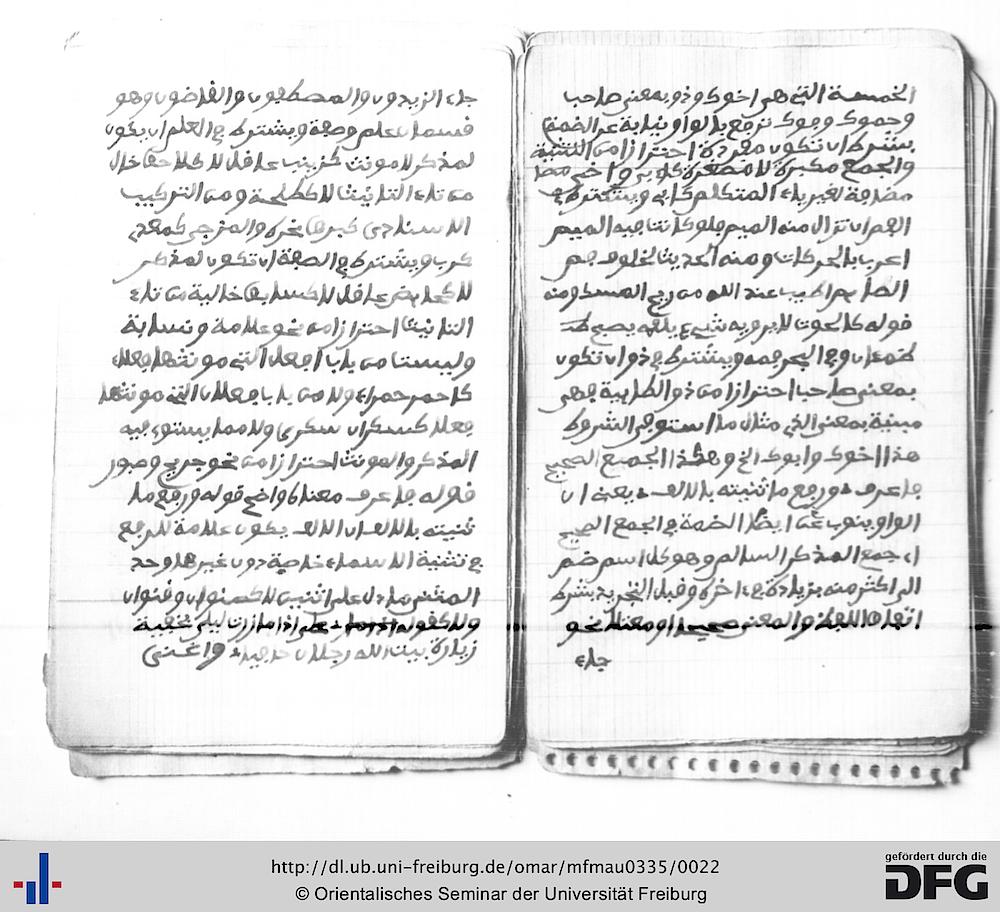 الخمسة التي هي اخوك وذو بمعنى صاحب
وحموك وفوك ترفع بالواو نيابة عن الضمة
يشترط ان تكون مفردة احترازا من التثنية
والجمع مكبرة لا مصغرة
مضافة لغير ياء المتكلم كابي ويشترط في
الفم ان تزال منه الميم فلو كانت فيه الميم
اعرب بالحركات ومنه الحديث لخلوف فم
الصايم اطيب عند الله من ريح المسك ومنه
قوله كالحوت لا يرويه شيء يلقمه يصبح
ظمءان وفي البحر فمه ويشترط في ذو ان تكون
بمعنى صاحب احترازا من ذو الطاءية فهي
مبنية بمعنى الذي مثال ما استوفى الشروط
هذا اخوك وابوك الخ وهكذا الجمع الصحيح
فاعرف ورفع ما ثنيته بالالف يعني ان
الواو ينوب عن ايضا الضمة في الجمع الصحيح
اي جمع المذكر السالم وهو كل اسم ضم
الى اكثر منه بزيادة في ءاخره وقبل التجريد بشرط
اتفاق اللفظ والمعنى او معتلا نحو
جاء
جاء الزيدون والمصطفون والقاضون وهو
قسمان علم وصفة ويشترط في العلم ان يكون
لمذكر لا مونث كزينب عاقل لا كلاحق خال
من تاء التانيث لا كطلحة ومن التركيب
الاسنادي كبرق نحره والمزجي كمعدي
كرب ويشترط في الصفة ان تكون لمذكر
لا كحايض عاقل لا كسابق خالية من تاء
التانيث احترازا من نحو علامة ونسابة
وليست من باب افعل الذي مونثه فعلاء
كاحمر حمراء ولا من باب فعلان الذي مونثه
فعلى كسكران سكرى ولا مما يستوي فيه
المذكر والمونث احترازا من نحو جريح وصبور
قوله فاعرف معناه واضح قوله ورفع ما
ثنيته بالالف ان الالف يكون علامة للرفع
في تثنية الاسماء خاصة دون غيرها وحد
المثنى ما دل على اثنين لا كصنوان وقنوان
ولا كقوله اذا ما زرت ليلى بخفية
زيارة بيت الله رجلان حافيا واغنى
http://dl.ub.uni-freiburg.de/omar/mfmau0335/0022
© Orientalisches Seminar der Universität Freiburg
gefördert durch die
DFG